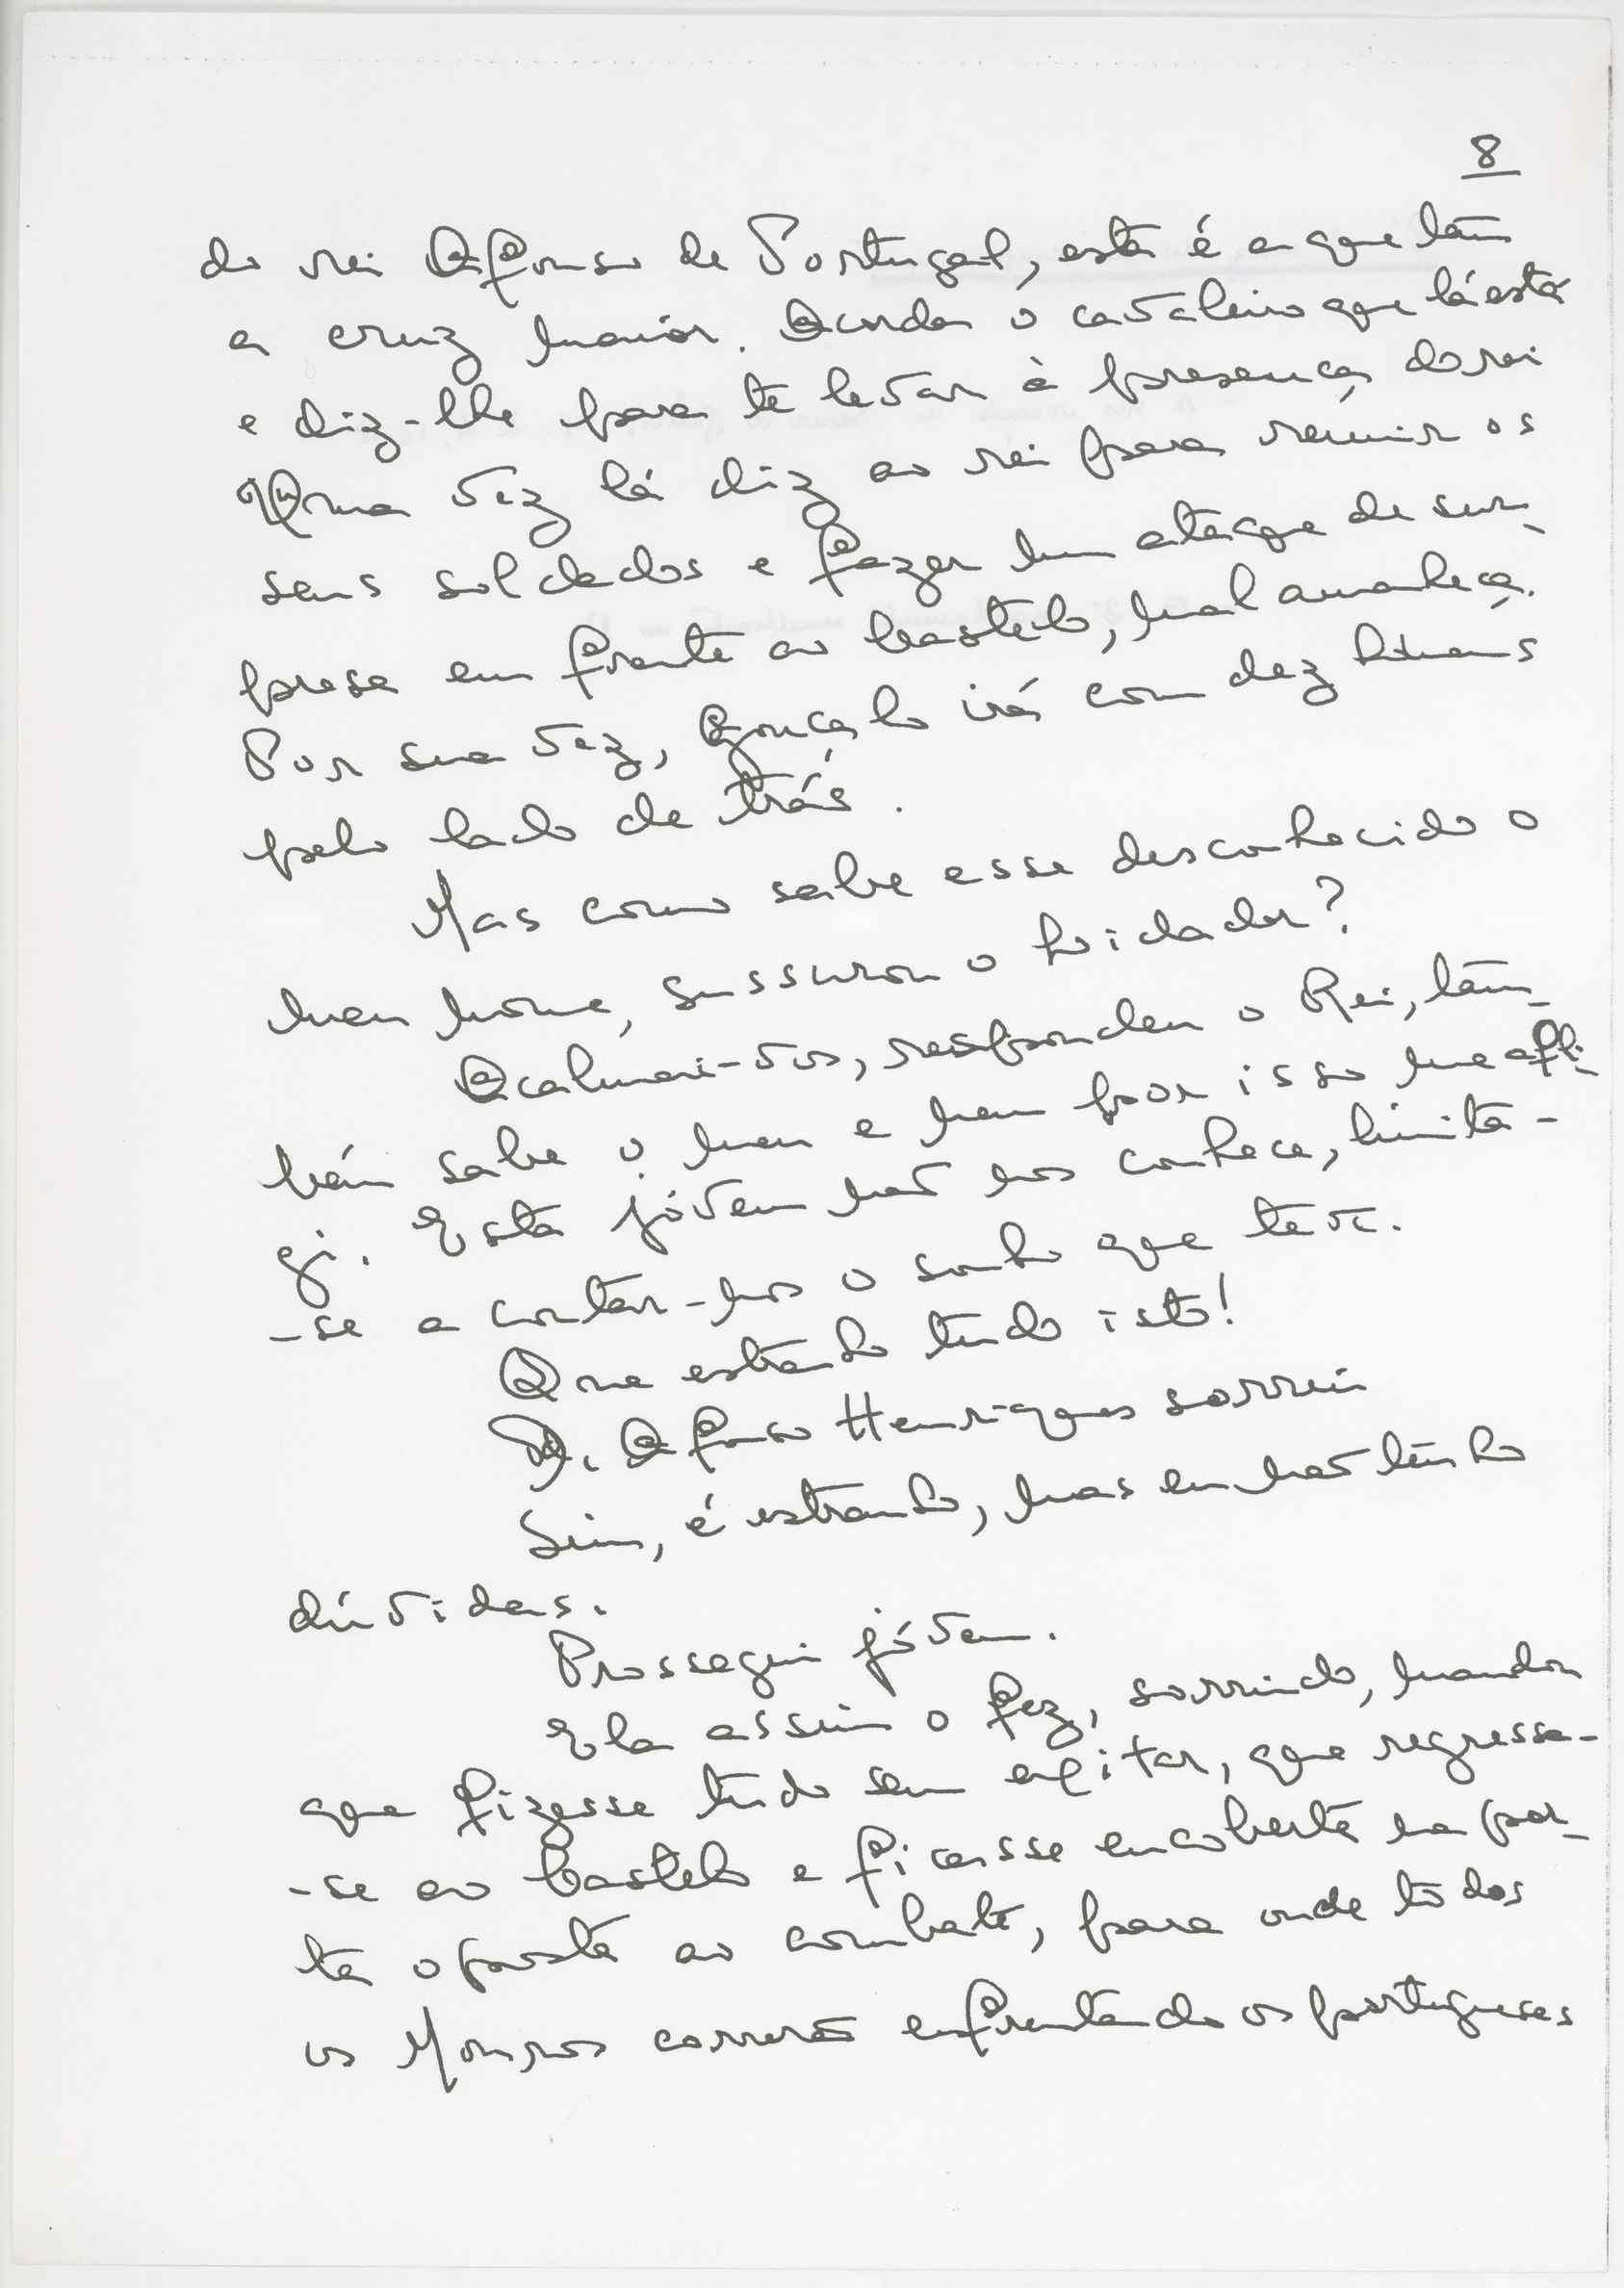 8
do rei Afonso de Portugal, esta é a que tem
a cruz maior. Acorda o cavaleiro que lá está
e diz-lhe para te levar à presença do rei
Uma vez lá diz ao rei para reunir os
seus soldados e fazer um ataque de sur-
presa em frente ao Castelo, mal amanheça.
Por sua vez, Gonçalo irá com dez homens
pelo lado de trás.
Mas como sabe esse desconhecido o
meu nome, sussurou o lidador?
Acalmai-vos, respondeu o Rei, tam-
bém sabe o meu e nem por isso me afli-
gi. Esta jóvem não nos conhece, limita-
-se a contar-nos o sonho que teve.
Que estranho tudo isto!
D. Afonso Henriques sorriu
Sim, é estranho, mas eu não tenho
dúvidas.
Prossegui jóvem.
Ela assim o fez, sorrindo, mandou
que fizesse tudo sem exitar, que regressa-
-se ao Castelo e ficasse encoberta na por-
ta oposta ao combate, para onde todos
os Mouros correrão enfrentando os portugueses